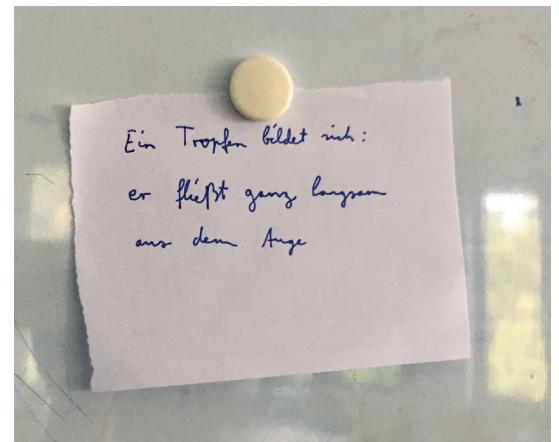 Ein Tropfen bildet sich:
er fließt ganz langsam
aus dem Auge